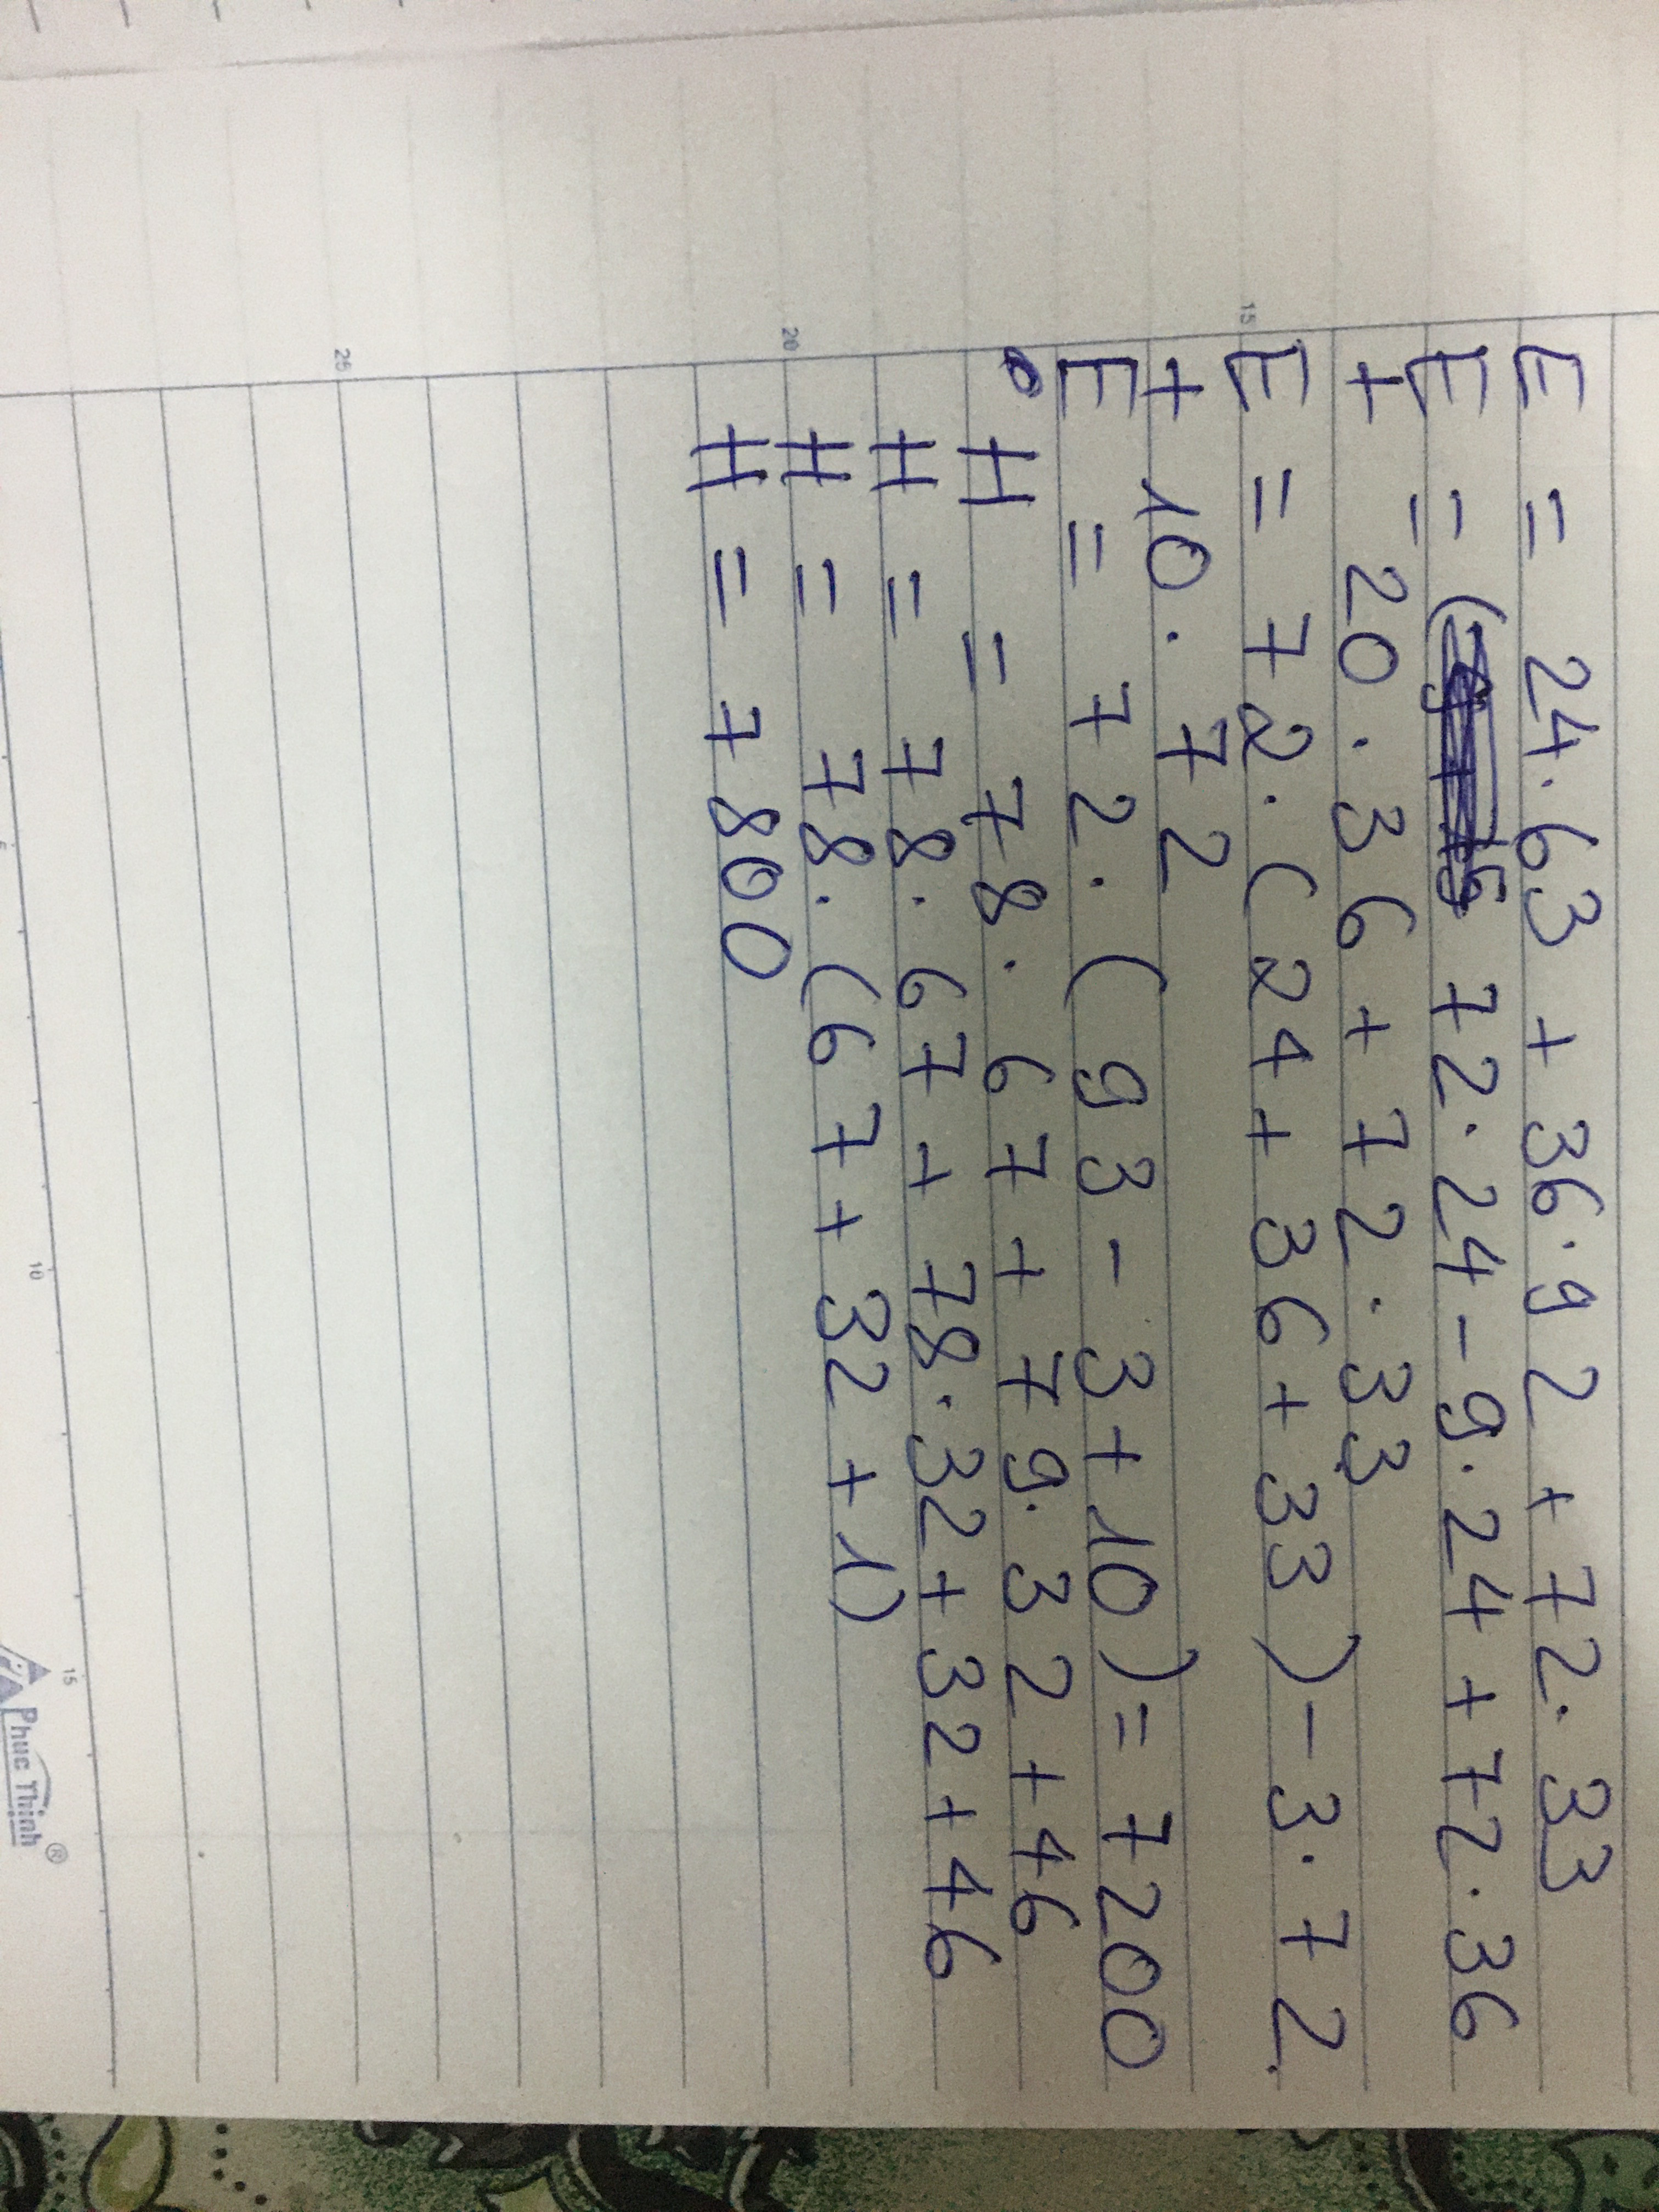 E = 24.63 + 36.92 + 72.33
E = ( 72.24 - 9.24 + 72.36
+ 20.36 + 72.33
15
E = 72.(24 + 36 + 33) - 3.72
+ 10.72
E = 72.(93 - 3 + 10) = 7200
H = 78.67 + 79.32 + 46
20
H = 78.67 + 78.32 + 32 + 46
H = 78.(67 + 32 + 1)
H = 7800
25
10
15
Phuc Thịnh ®